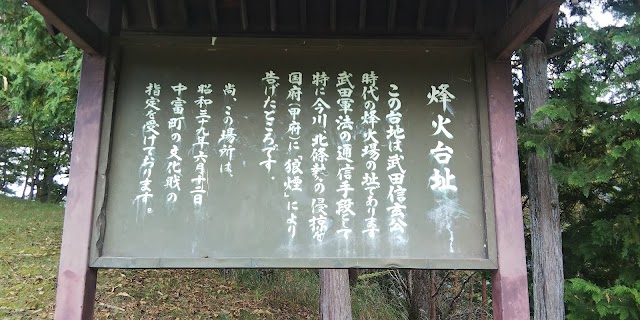 烽火台址
この台地は武田信玄公
時代の烽火場の址であります
武田軍法の通信手段として
特に今川、北條勢の侵接を
国府(甲府)に「狼煙」により
告げたところです。
尚、この場所は、
昭和三十九年六月廿一日
中富町の文化財の
指定を受けております。